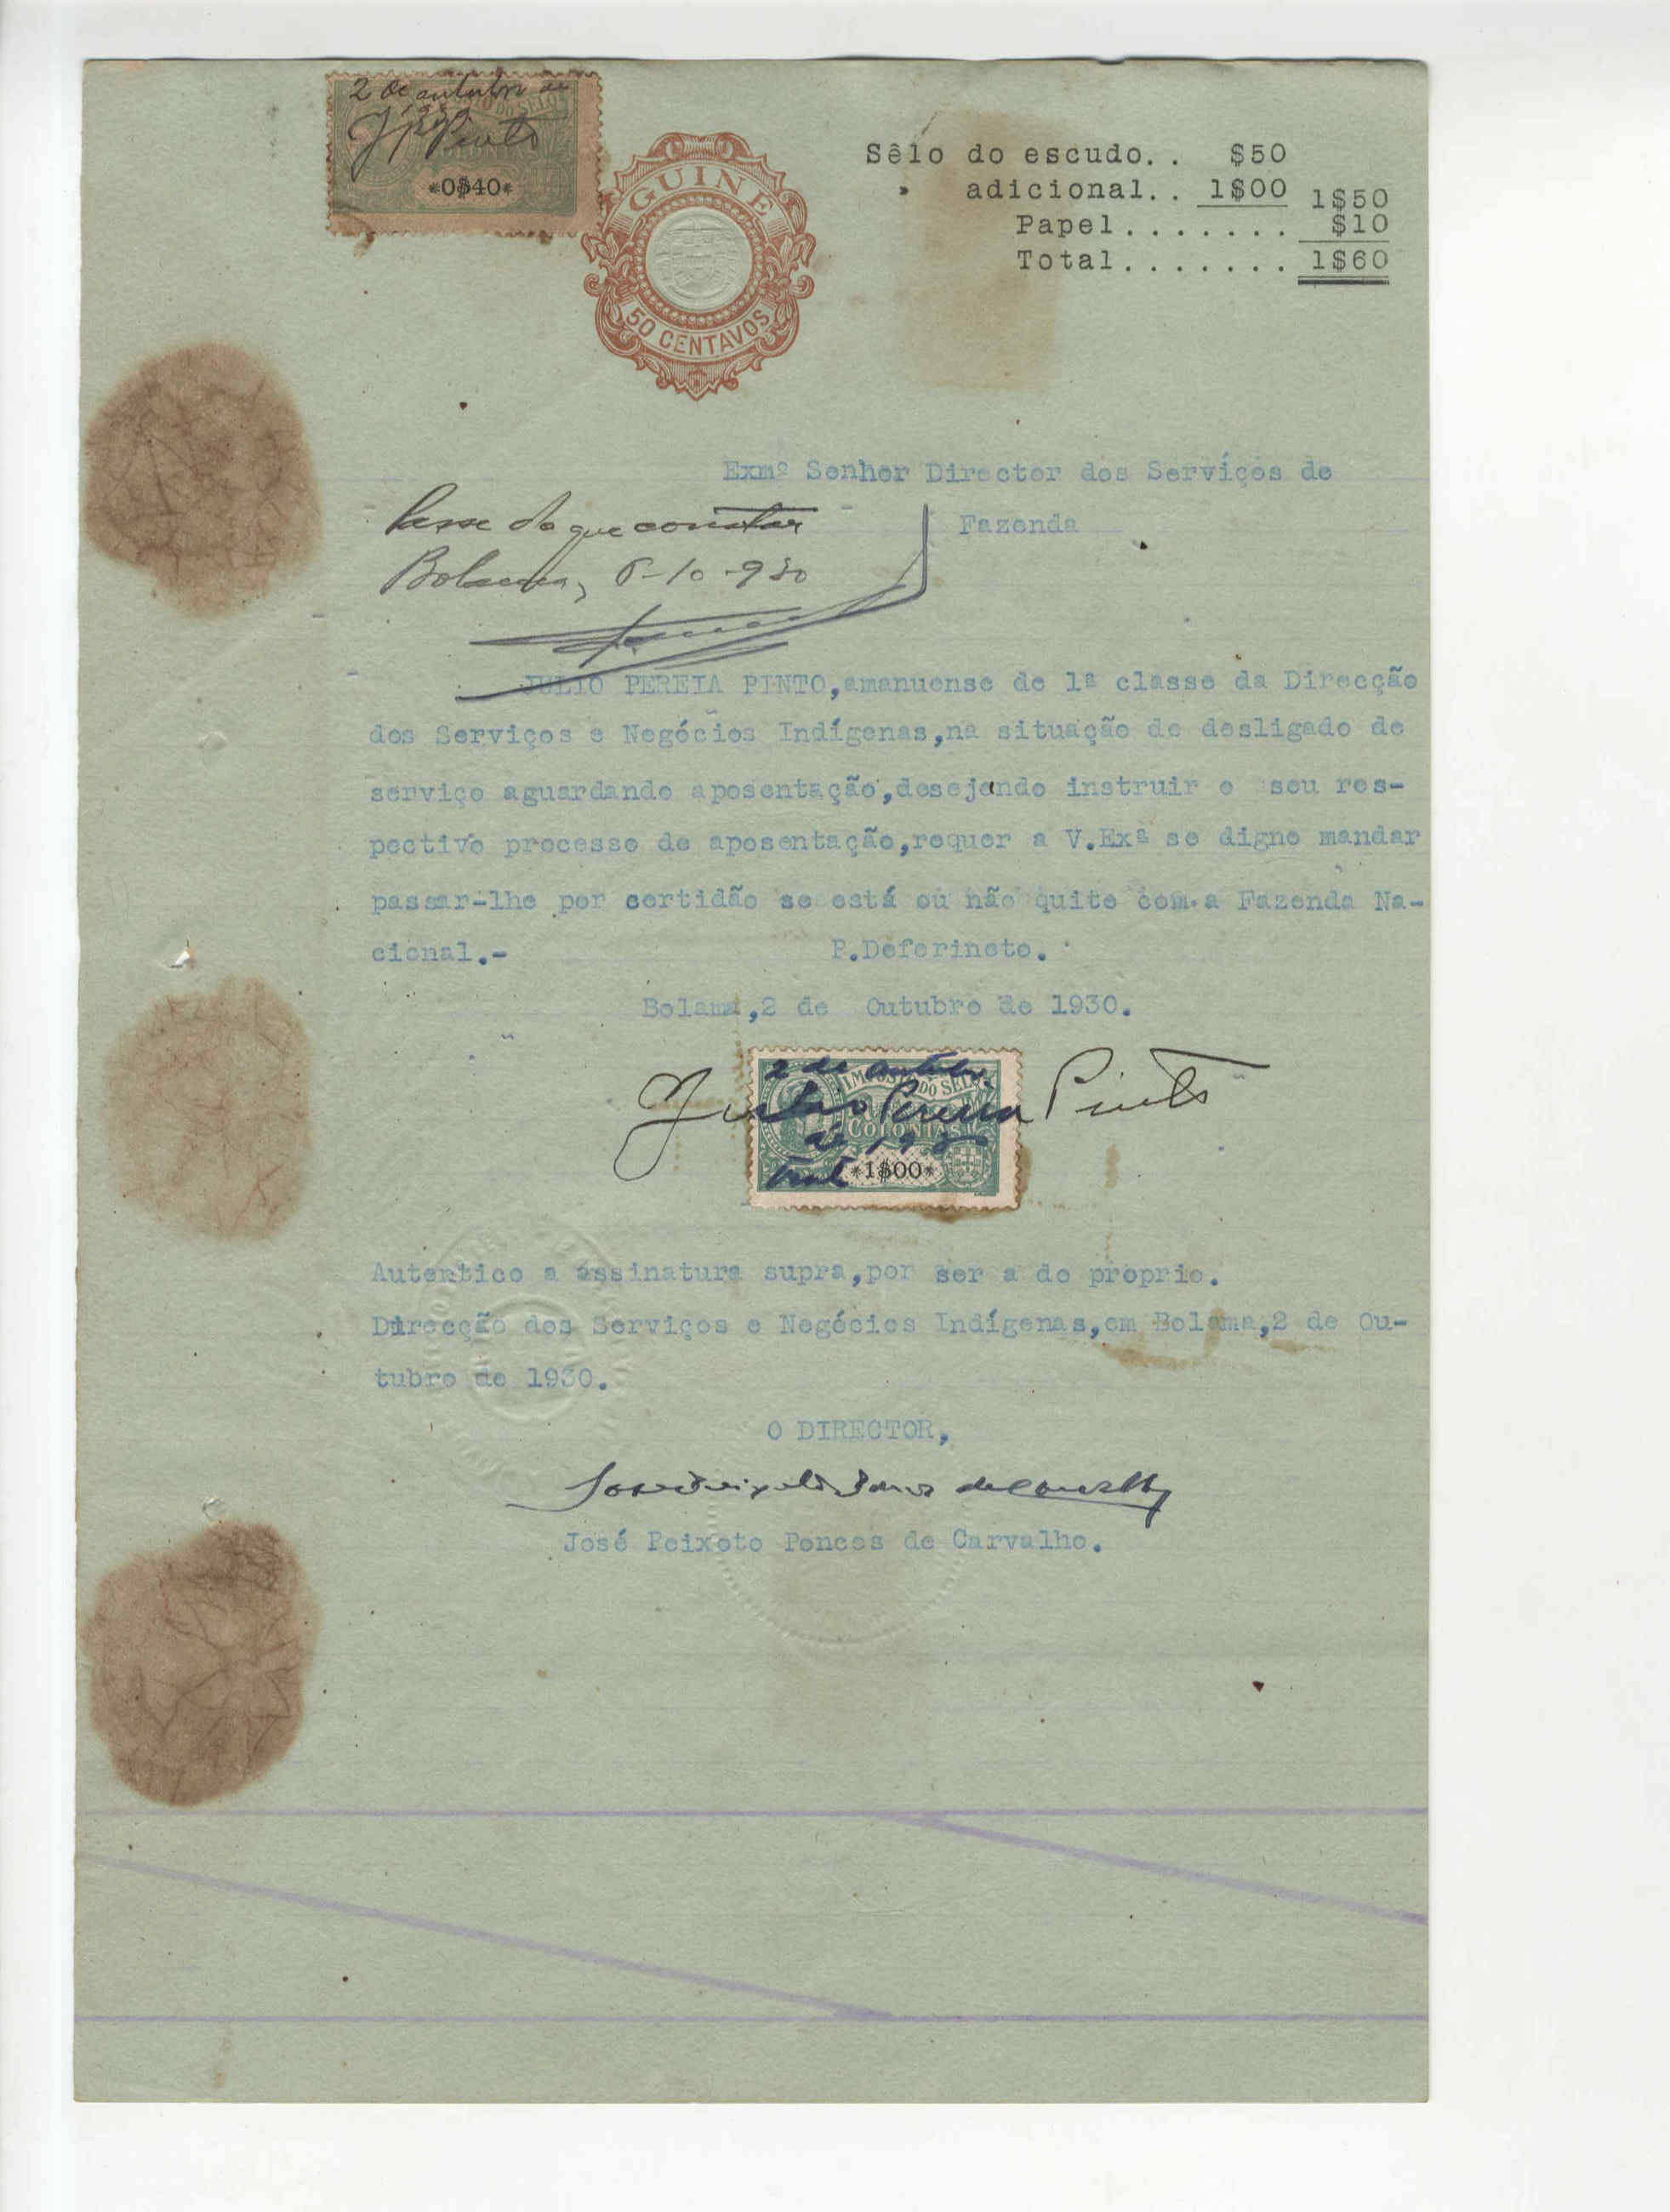 2 de outubro de
1930
J P Pinto
IMPOSTO DO SELO
COLONIAS
*0$40*
GUINÉ
50 CENTAVOS
Sêlo do escudo.. $50
" adicional.. 1$00 1$50
Papel....... $10
Total....... 1$60
Exmº Senhor Director dos Serviços de
Fazenda
Passe do que constar
Bolama, 6-10-930
JULIO PEREIA PINTO,amanuense de 1ª classe da Direcção
dos Serviços e Negócios Indígenas,na situação de desligado de
serviço aguardando aposentação,desejando instruir o seu res-
pectivo processo de aposentação,requer a V.Exª se digne mandar
passar-lhe por certidão se está ou não quite com a Fazenda Na-
cional.- P.Deferineto.
Bolama,2 de Outubro de 1930.
2 de outubro
IMPOSTO DO SELO
Julio Pereira Pinto
COLONIAS
de 1930
*1$00*
Autentico a assinatura supra,por ser a do proprio.
Direcção dos Serviços e Negócios Indígenas,em Bolama,2 de Ou-
tubro de 1930.
O DIRECTOR,
José Peixoto Ponces de Carvalho
José Peixoto Ponces de Carvalho.